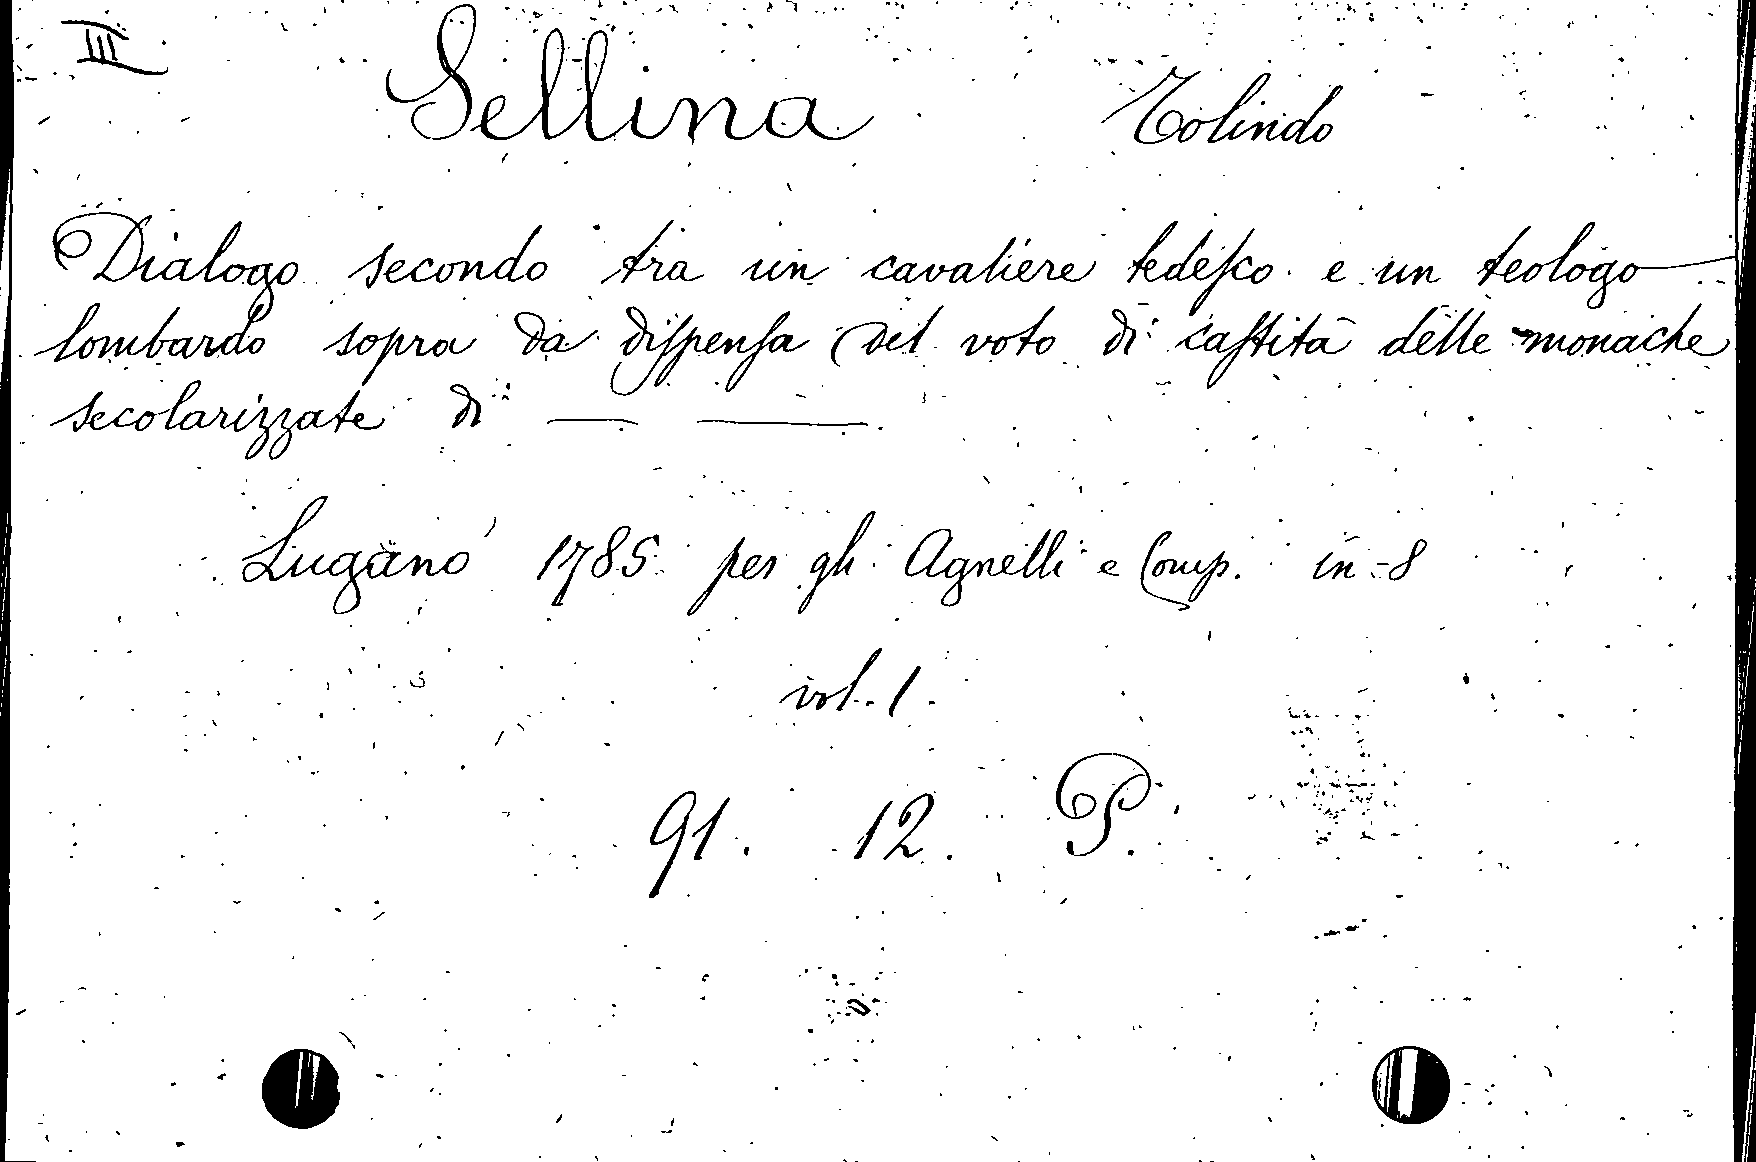 III
Sellina Tolindo
Dialogo secondo tra un cavaliere tedesco e un teologo
lombardo sopra da dispensa del voto di castità delle monache
secolarizzate di — —
Lugano 1785 per gli Agnelli e Comp. in-8
vol. 1.
91. 12. P.